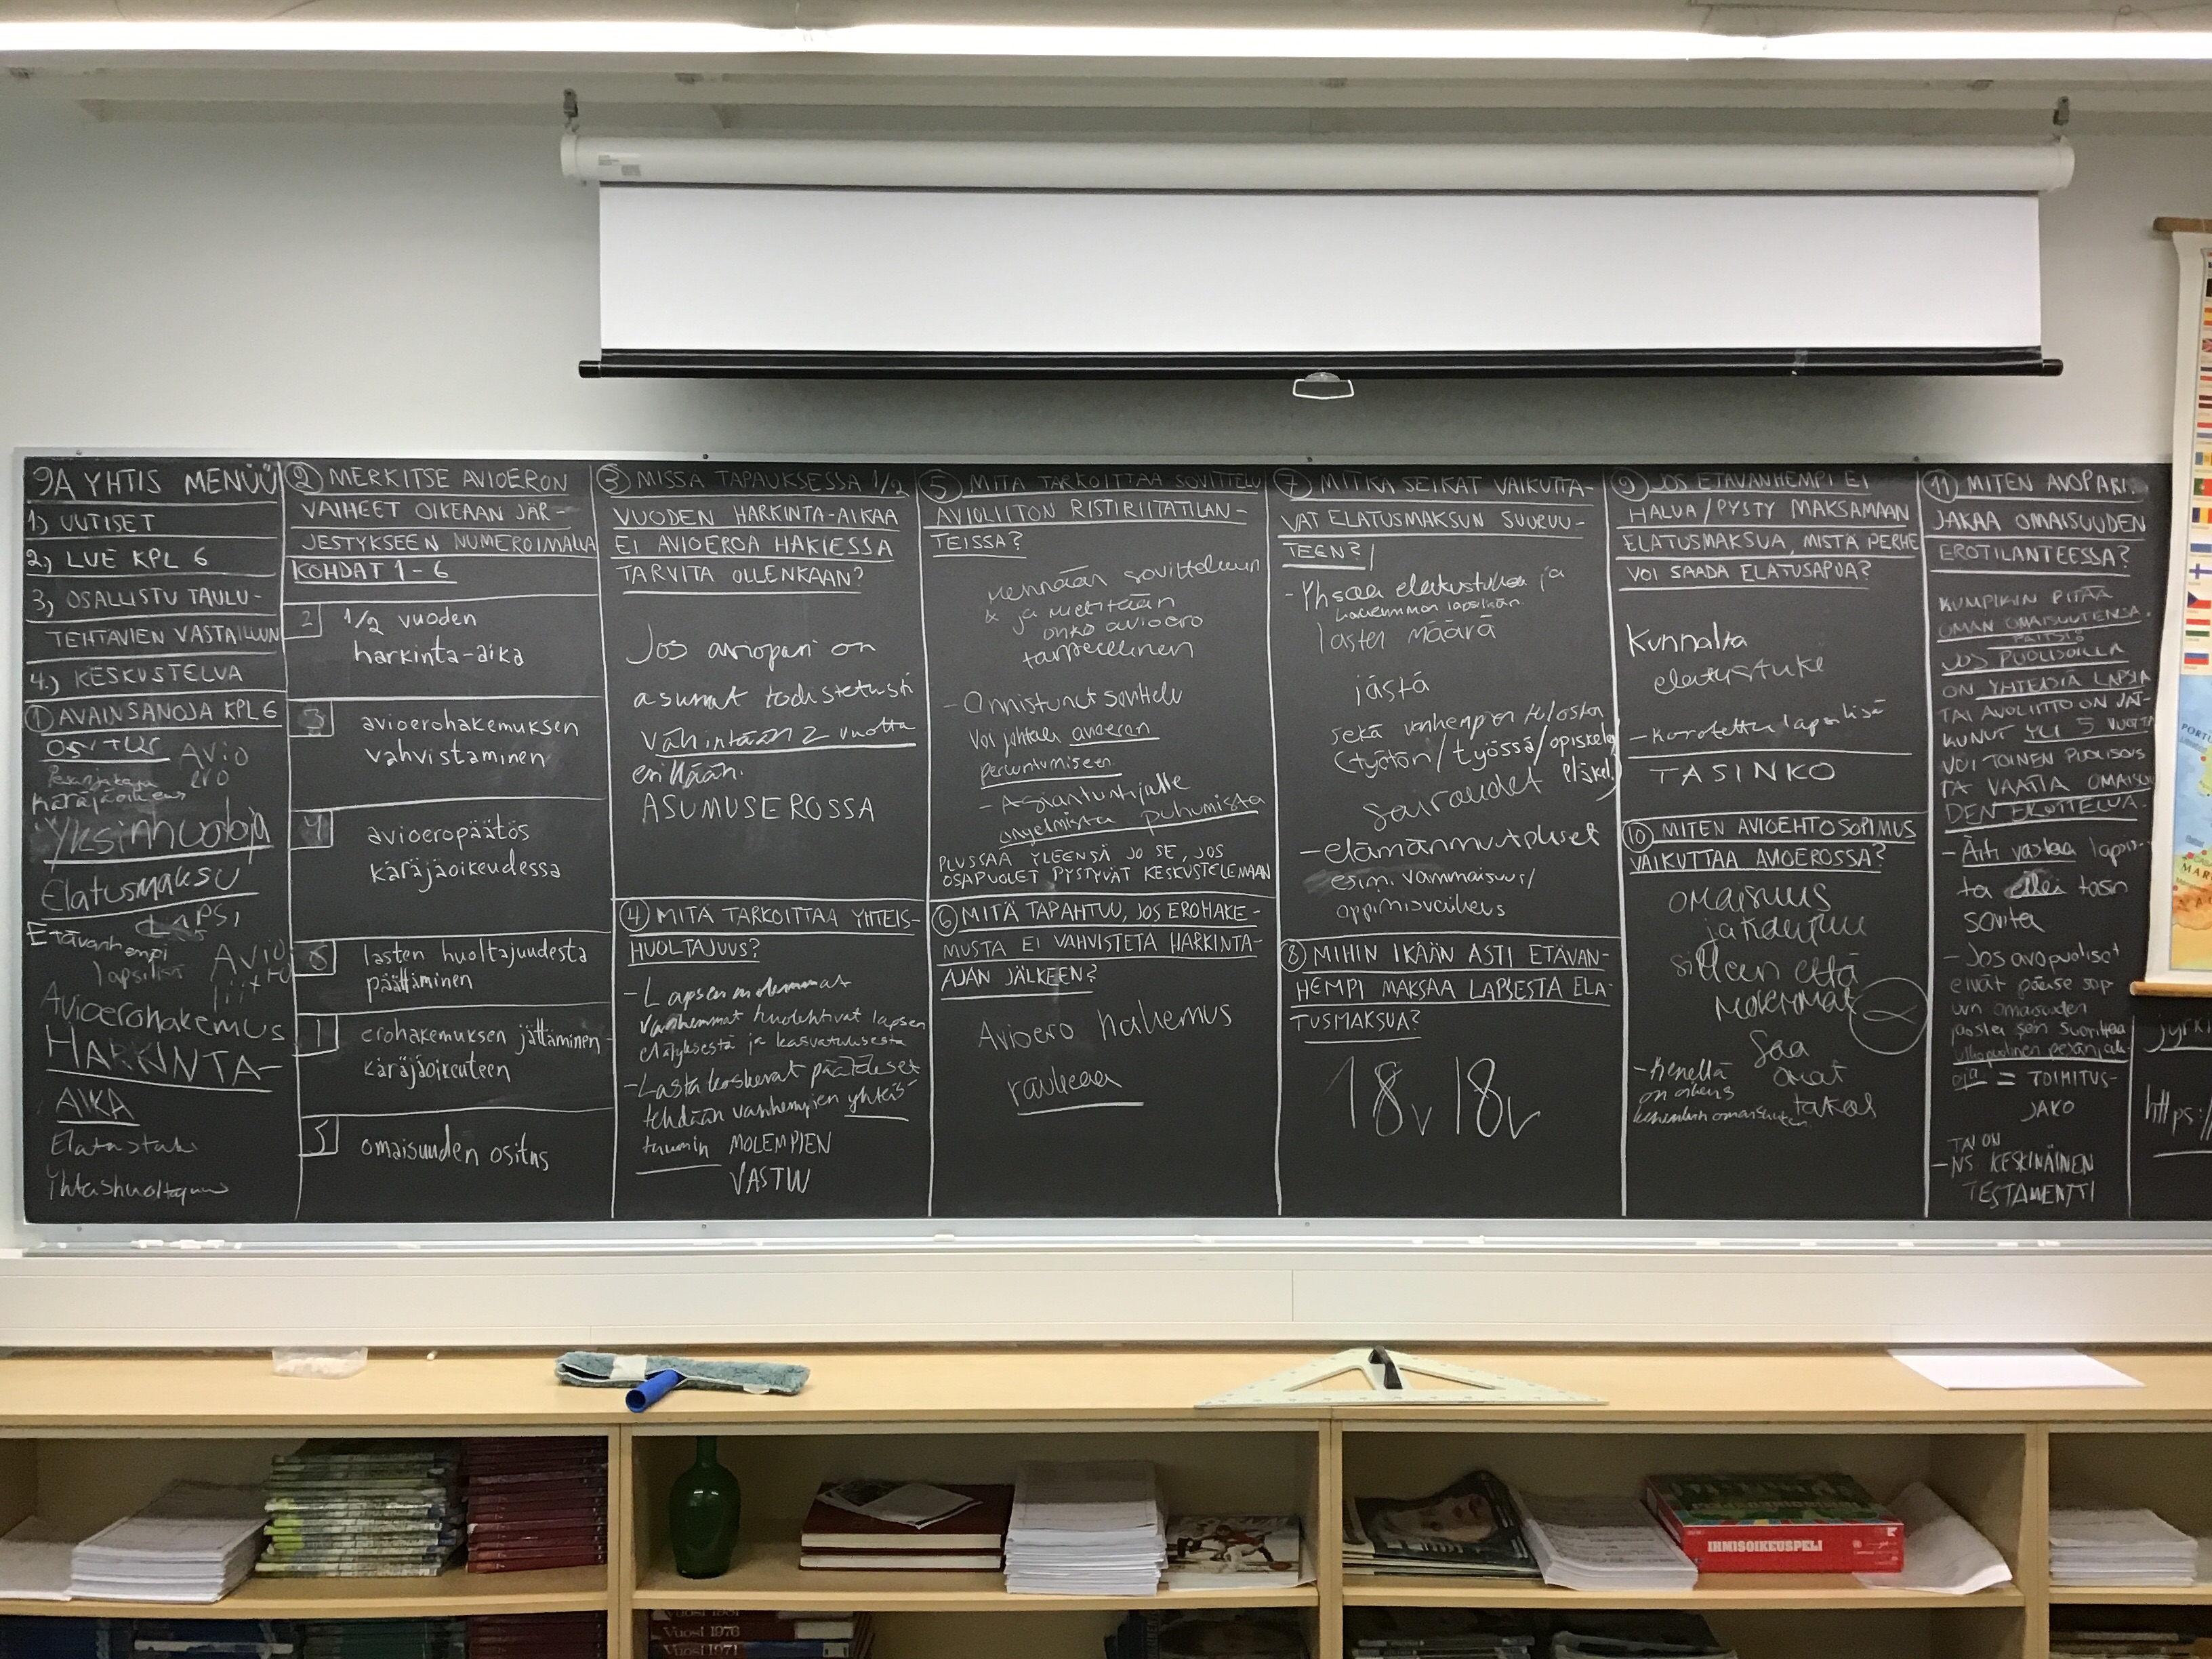 9A YHTIS MENÜÜ
1.) UUTISET
2.) LUE KPL 6
3.) OSALLISTU TAULU-
TEHTÄVIEN VASTAILUUN
4.) KESKUSTELUA
① AVAINSANOJA KPL 6
OSITUS
AVIO
ERO
Pesänjakaja
Käräjäoikeus
Yksinhuoltaja
Elatusmaksu
LAPSI
Etävanhempi
lapsilisä
Avio
liitto
Avioerohakemus
HARKINTA-
AIKA
Elatustuki
Yhteishuoltajuus
② MERKITSE AVIOERON
VAIHEET OIKEAAN JÄR-
JESTYKSEEN NUMEROIMALLA
KOHDAT 1-6
2 1/2 vuoden
harkinta-aika
3 avioerohakemuksen
vahvistaminen
4 avioeropäätös
käräjäoikeudessa
6 lasten huoltajuudesta
päättäminen
1 erohakemuksen jättäminen
käräjäoikeuteen
5 omaisuuden ositus
③ MISSÄ TAPAUKSESSA 1/2
VUODEN HARKINTA-AIKAA
EI AVIOEROA HAKIESSA
TARVITA OLLENKAAN?
Jos aviopari on
asunut todistetusti
vähintään 2 vuotta
erillään.
ASUMUSEROSSA
④ MITÄ TARKOITTAA YHTEIS-
HUOLTAJUUS?
- Lapsen molemmat
vanhemmat huolehtivat lapsen
elätyksestä ja kasvatuksesta
- Lasta koskevat päätökset
tehdään vanhempien yhteis
tuumin MOLEMPIEN
VASTUU
⑤ MITÄ TARKOITTAA SOVITTELU
AVIOLIITON RISTIRIITATILAN-
TEISSA?
mennään sovitteluun
& ja mietitään
onko avioero
tarpeellinen
- Onnistunut sovittelu
voi johtaa avioeron
peruuntumiseen
- Asiantuntijalle
ongelmista puhumista
PLUSSAA YLEENSÄ JO SE, JOS
OSAPUOLET PYSTYVÄT KESKUSTELEMAAN
⑥ MITÄ TAPAHTUU, JOS EROHAKE-
MUSTA EI VAHVISTETA HARKINTA-
AJAN JÄLKEEN?
Avioero hakemus
raukeaa
⑦ MITKÄ SEIKAT VAIKUTTA-
VAT ELATUSMAKSUN SUURUU-
TEEN?
- Yhsaa elatustukea ja
lapsilisän
lasten määrä
jästä
sekä vanhempien tulosta
(työtön/työssä/opiskelu
eläkel.)
sairaudet
- elämänmuutokset
esim. vammaisuus/
oppimisvaikeus
⑧ MIHIN IKÄÄN ASTI ETÄVAN-
HEMPI MAKSAA LAPSESTA ELA-
TUSMAKSUA?
18v 18v
⑨ JOS ETÄVANHEMPI EI
HALUA/PYSTY MAKSAMAAN
ELATUSMAKSUA, MISTÄ PERHE
VOI SAADA ELATUSAPUA?
Kunnalta
elatustuki
- Korotettu lapsilisä
TASINKO
⑩ MITEN AVIOEHTOSOPIMUS
VAIKUTTAA AVIOEROSSA?
omaisuus
jakautuu
silleen että
molemmat
saa
omat
takas
- Kenellä
on oikeus
kenenkin omaisuuteen
⑪ MITEN AVOPARI
JAKAA OMAISUUDEN
EROTILANTEESSA?
KUMPIKIN PITÄÄ
OMAN OMAISUUTENSA.
PAITSI
JOS PUOLISOILLA
ON YHTEISIÄ LAPSIA
TAI AVOLIITTO ON JAT-
KUNUT YLI 5 VUOTTA
VOI TOINEN PUOLISOIS
TA VAATIA OMAISUU
DEN EROTTELUA.
- Äiti vastaa lapsis-
ta ellei toisin
sovita
- Jos avopuolisot
eivät pääse sop
uun omaisuuden
jaosta sen suorittaa
ulkopuolinen pesänjak-
aja = TOIMITUS-
JAKO
TAI ON
- NS KESKINÄINEN
TESTAMENTTI
jyrki
https:/
PORTU
MAR
IHMISOIKEUSPELI
Vuosi 1981
Vuosi 1976
Vuosi 1971